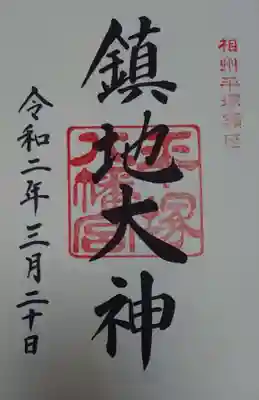 相州平塚鎮座
鎮地大神
平塚八幡宮
令和二年三月二十日